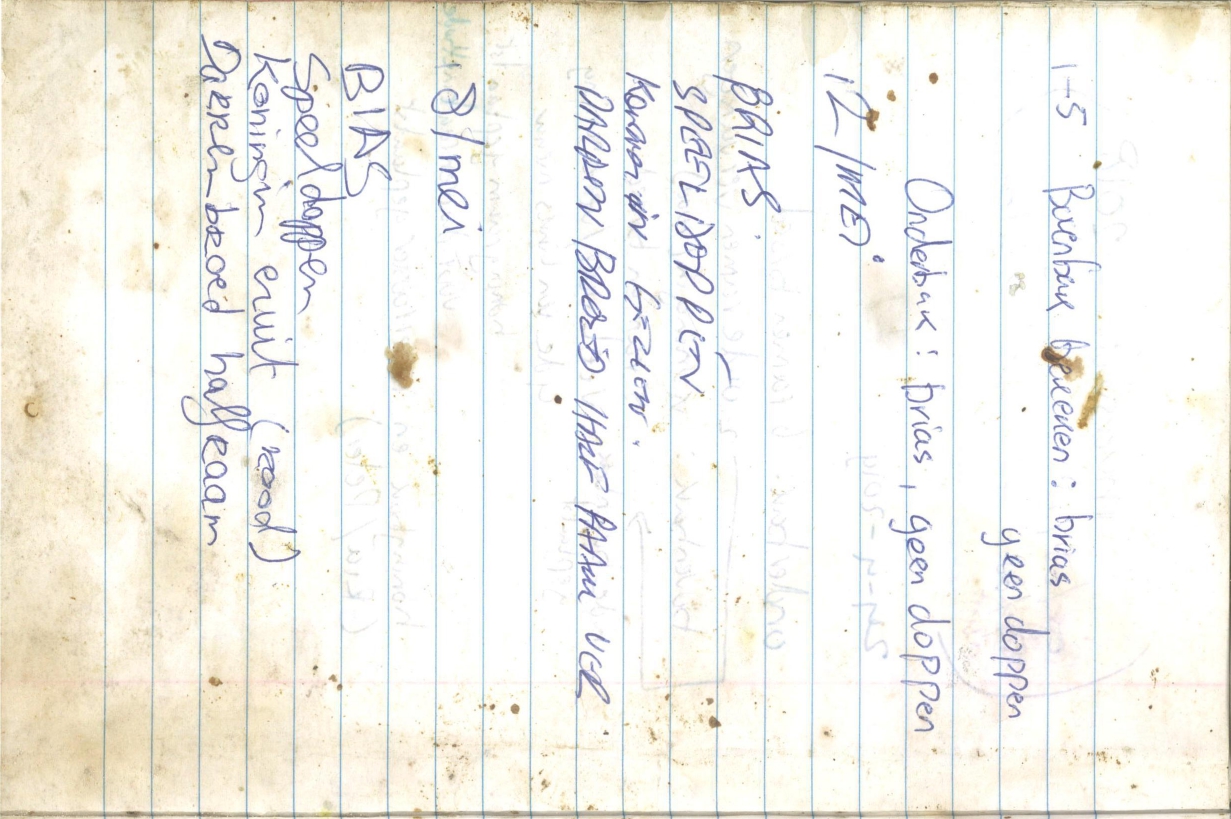 1-5 Bovenbak bekeken : brias
geen doppen
Onderbak : brias, geen doppen
12/MEI
BRIAS
SPEELDOPPEN
Koningin GEZIEN.
DARREN BROED HALF RAAM VER
8/mei
BIAS
Speeldoppen
Koningin eruit (rood)
Darrenbroed half raam